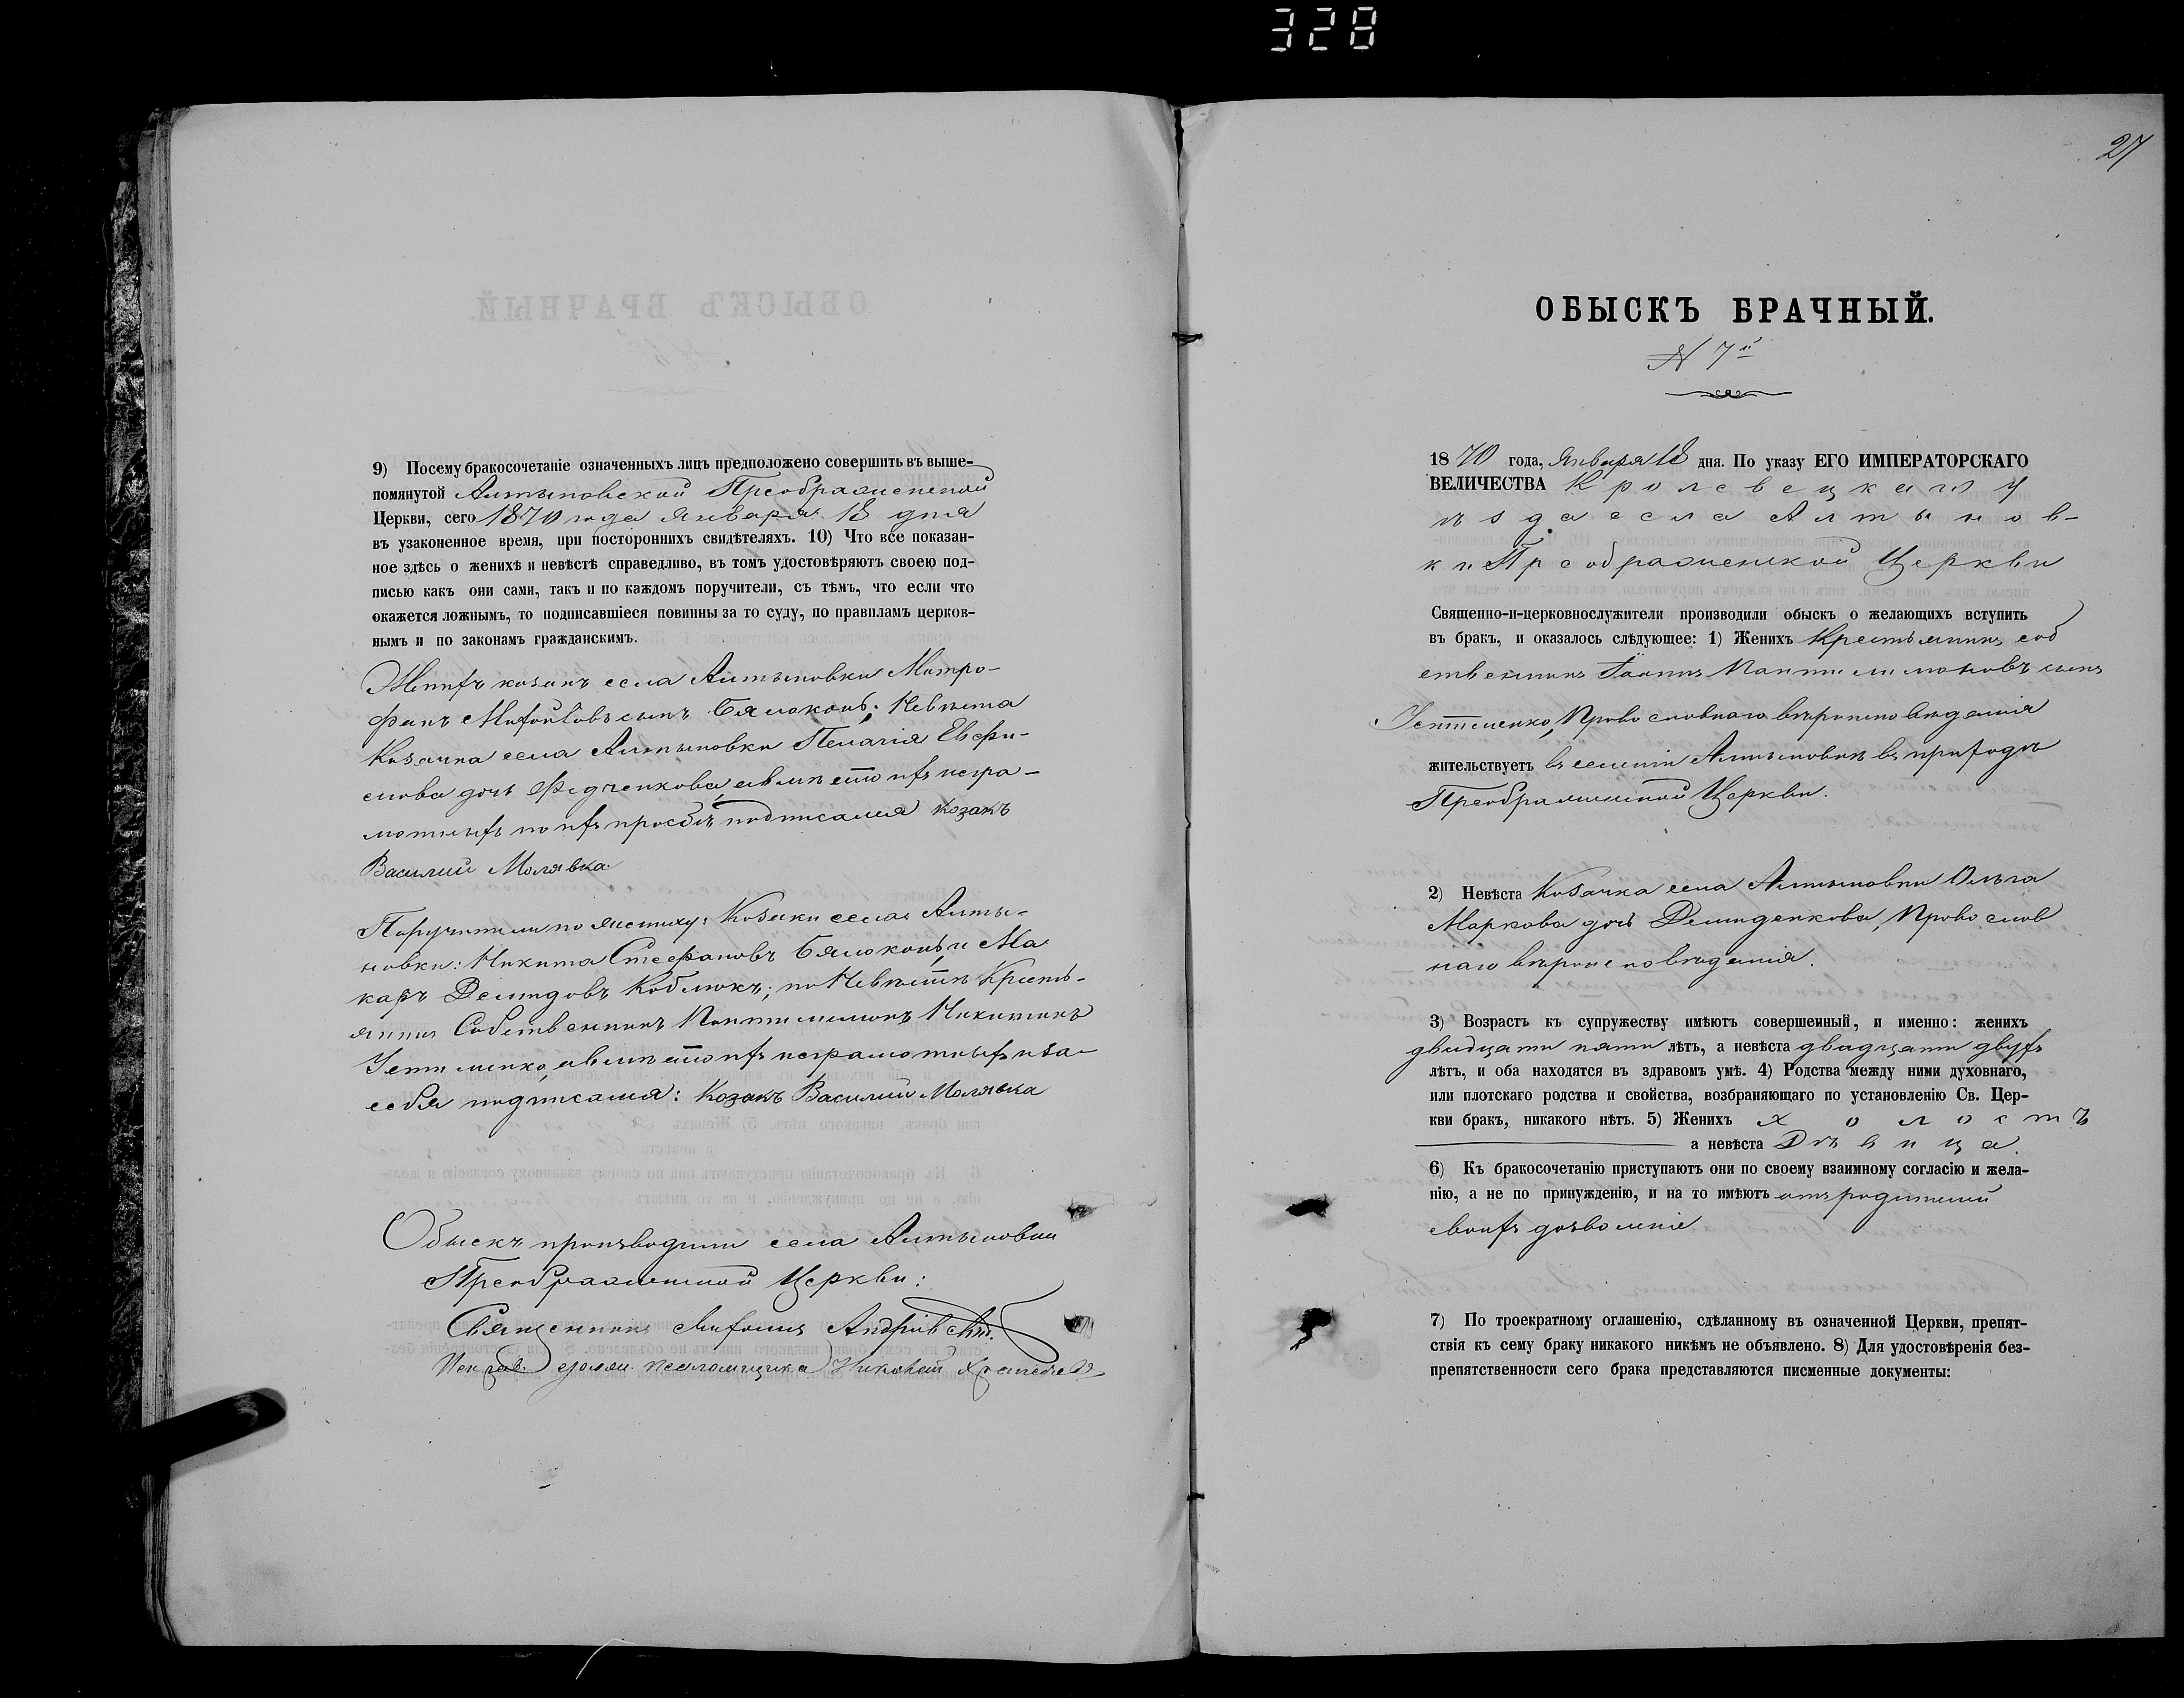 328
9) Посему бракосочетаніе означенныхъ лицъ предположено совершить въ выше-
помянутой Алтыновской Преображенской
Церкви, сего 1870 года Января 18 дня
въ узаконенное время, при постороннихъ свидѣтеляхъ. 10) Что все показан-
ное здѣсь о женихѣ и невѣстѣ справедливо, въ томъ удостовѣряютъ своею под-
писью какъ они сами, такъ и по каждомъ поручители, съ тѣмъ, что если что
окажется ложнымъ, то подписавшіеся повинны за то суду, по правиламъ церков-
нымъ и по законамъ гражданскимъ.
Женихъ козакъ села Алтыновки Митро-
фанъ сынъ Бялоконь; Невѣста
Козачка села Алтыновки Пелагія Евфи-
мова дочь Федченкова, а вмѣсто ихъ негра-
мотныхъ по ихъ просьбѣ подписался козакъ
Василий Молявка.
Поручители по женихѣ: Козаки села Алты-
новки: Никита Стефановъ Бялоконь, и Ма
каръ Демидовъ Коблюкъ; по Невѣстѣ Кресть-
янинъ Собственникъ Пантилимонъ Никитинъ
а вмѣсто ихъ неграмотныхъ и за
себя подписался: Козакъ Василий Молявка
Обыскъ производили села Алтыновки
Преображенской Церкви:
Священникъ Андріевскій.
псаломщика Николай
27
ОБЫСКЪ БРАЧНЫЙ.
N 7й
1870 года, Января 18 дня. По указу ЕГО ИМПЕРАТОРСКАГО
ВЕЛИЧЕСТВА Кролевецкаго у
ѣзда села Алтынов-
ки Преображенской Церкви
Священно-и-церковнослужители производили обыскъ о желающихъ вступить
въ бракъ, и оказалось слѣдующее: 1) Женихъ Крестьянинъ соб
ственникъ Іоаннъ Пантилимоновъ сынъ
Православнаго вѣроисповѣданія
жительствуетъ въ селеніи Алтыновкѣ въ приходѣ
Преображенской Церкви.
2) Невѣста Козачка села Алтыновки Ольга
Маркова дочь Демиденкова, Православ
наго вѣроисповѣданія.
3) Возрастъ къ супружеству имѣютъ совершенный, и именно: женихъ
двадцати пяти лѣтъ, а невѣста двадцати двухъ
лѣтъ, и оба находятся въ здравомъ умѣ. 4) Родства между ними духовнаго,
или плотскаго родства и свойства, возбраняющаго по установленію Св. Цер-
кви бракъ, никакого нѣтъ. 5) Женихъ холостъ
а невѣста Дѣвица.
6) Къ бракосочетанію приступаютъ они по своему взаимному согласію и жела-
нію, а не по принужденію, и на то имѣютъ отъ родителей
своихъ дозволеніе
7) По троекратному оглашенію, сдѣланному въ означенной Церкви, препят-
ствія къ сему браку никакого никѣмъ не объявлено. 8) Для удостовѣренія без-
препятственности сего брака представляются писменные документы: